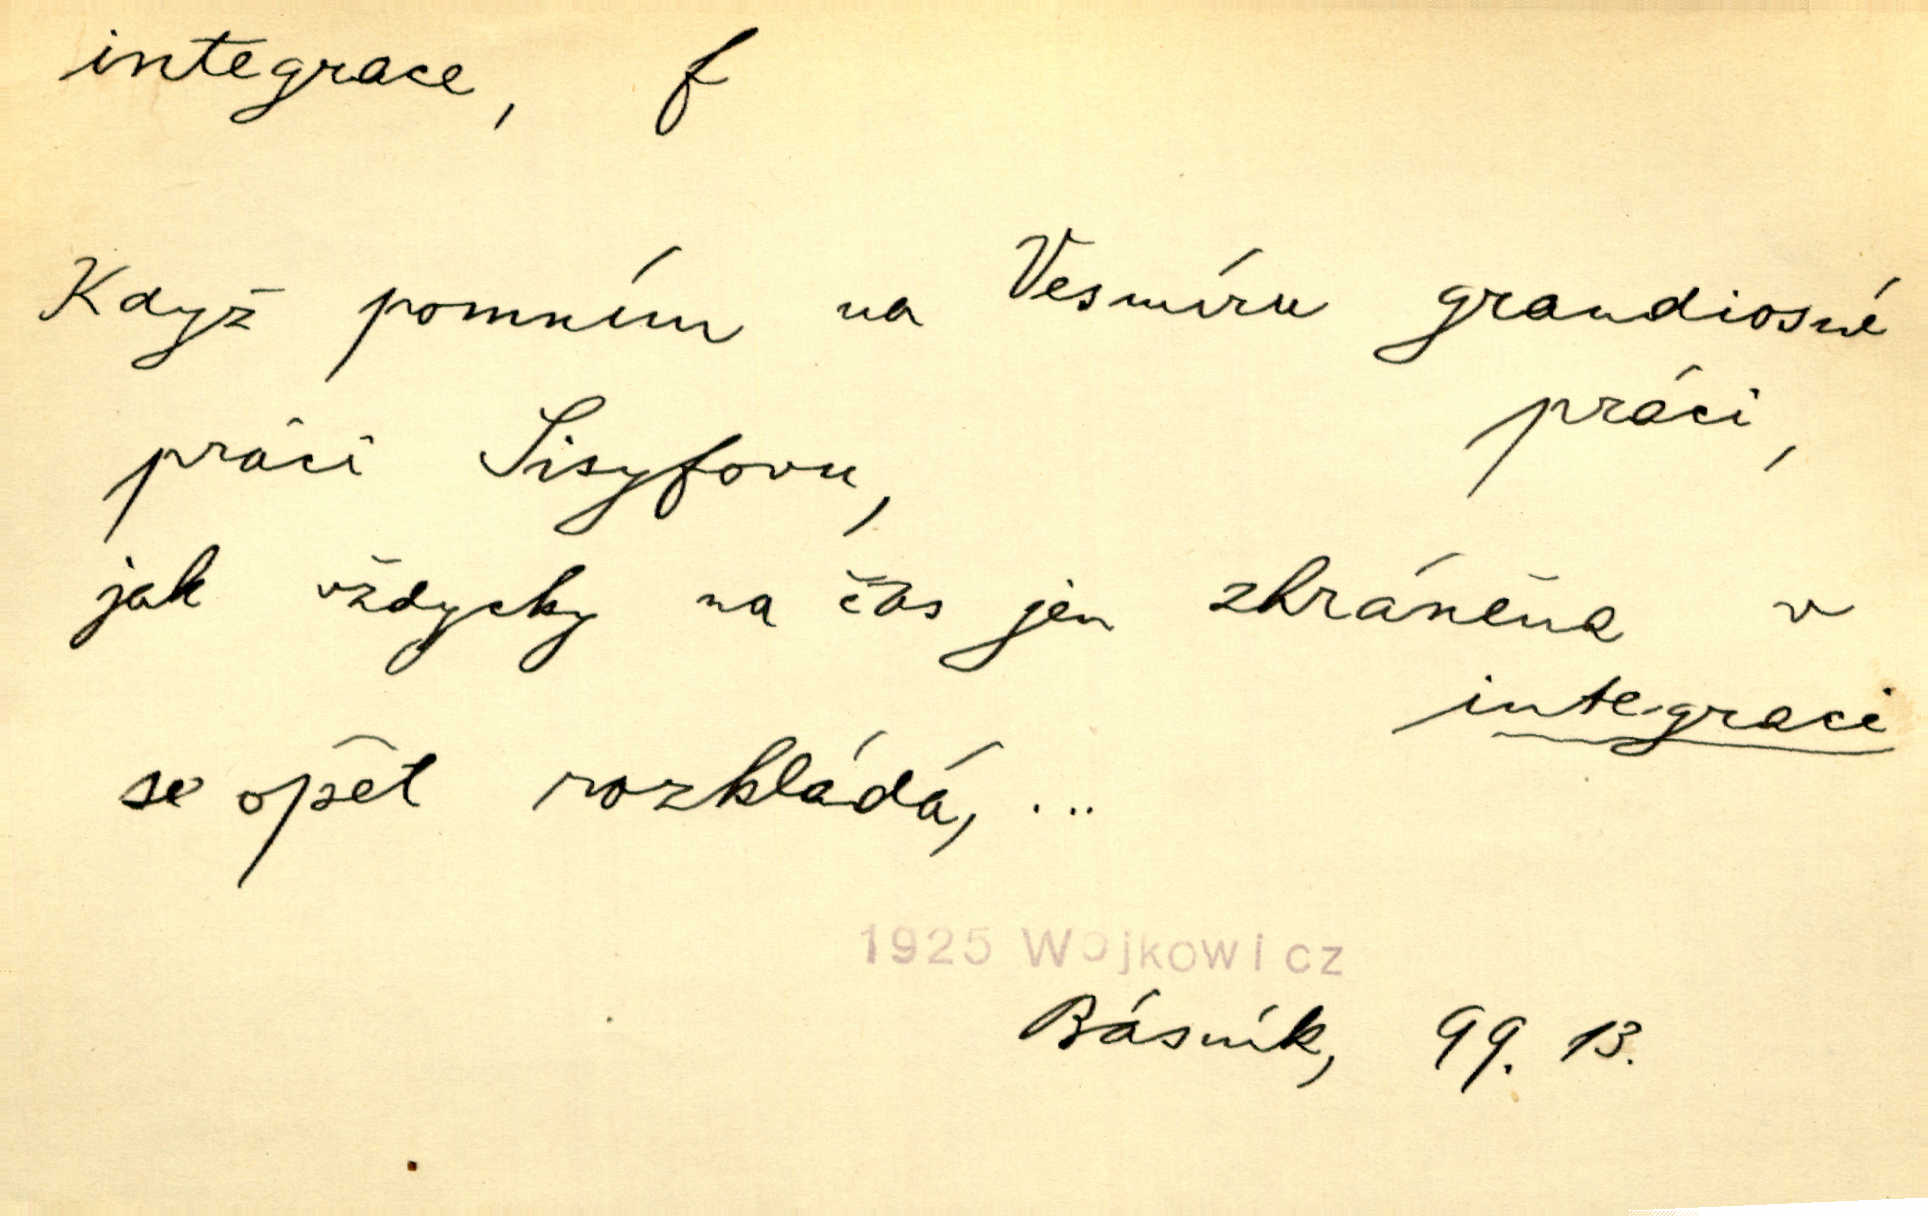 integrace, f
Když pomním na Vesmíru grandiosné
práci,
práci Sisyfovu,
jak vždycky na čas jen zhráněna v
integraci
se opět rozkládá, ...
1925 Wojkowicz
Básník, 99. 13.